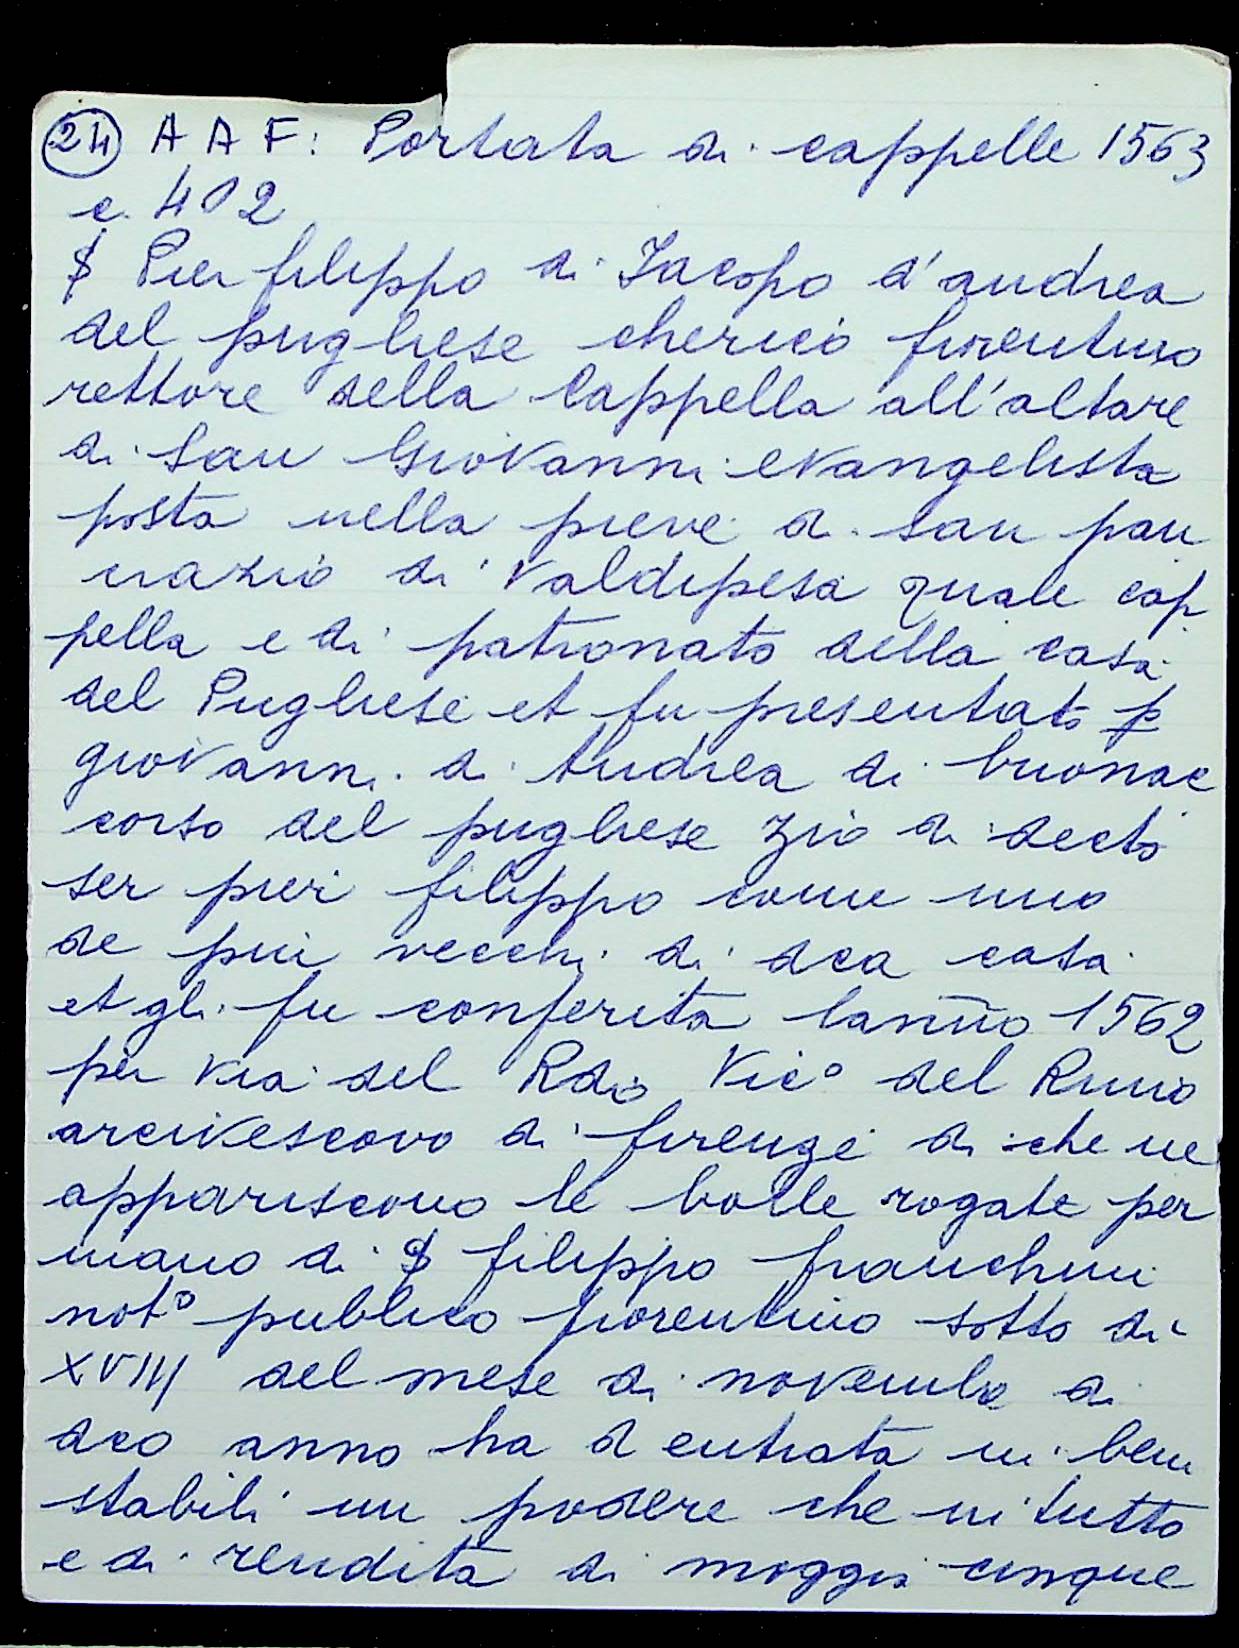 24 A A F: Portata di cappelle 1563
c. 402
$ Pier filippo di Jacopo d'andrea
del pugliese cherico fiorentino
rettore della Cappella all'altare
di San Giovanni evangelista
posta nella pieve di san pan
crazio di Valdipesa quale cap
pella e di patronato della casa
del Pugliese et fu presentato p
giovanni di Andrea di buonac
corso del pugliese zio di decto
ser pier filippo come uno
de piu vecchi di dca casa
et gli fu conferita lanno 1562
per via del Rdo Vico del Rmo
arcivescovo di firenze di che ne
appariscono le bolle rogate per
mano di $ filippo franchini
noto publico fiorentino sotto di
XVIII del mese di novembre di
dco anno ha d entrata in beni
stabili un podere che in tutto
e di rendita di moggia cinque